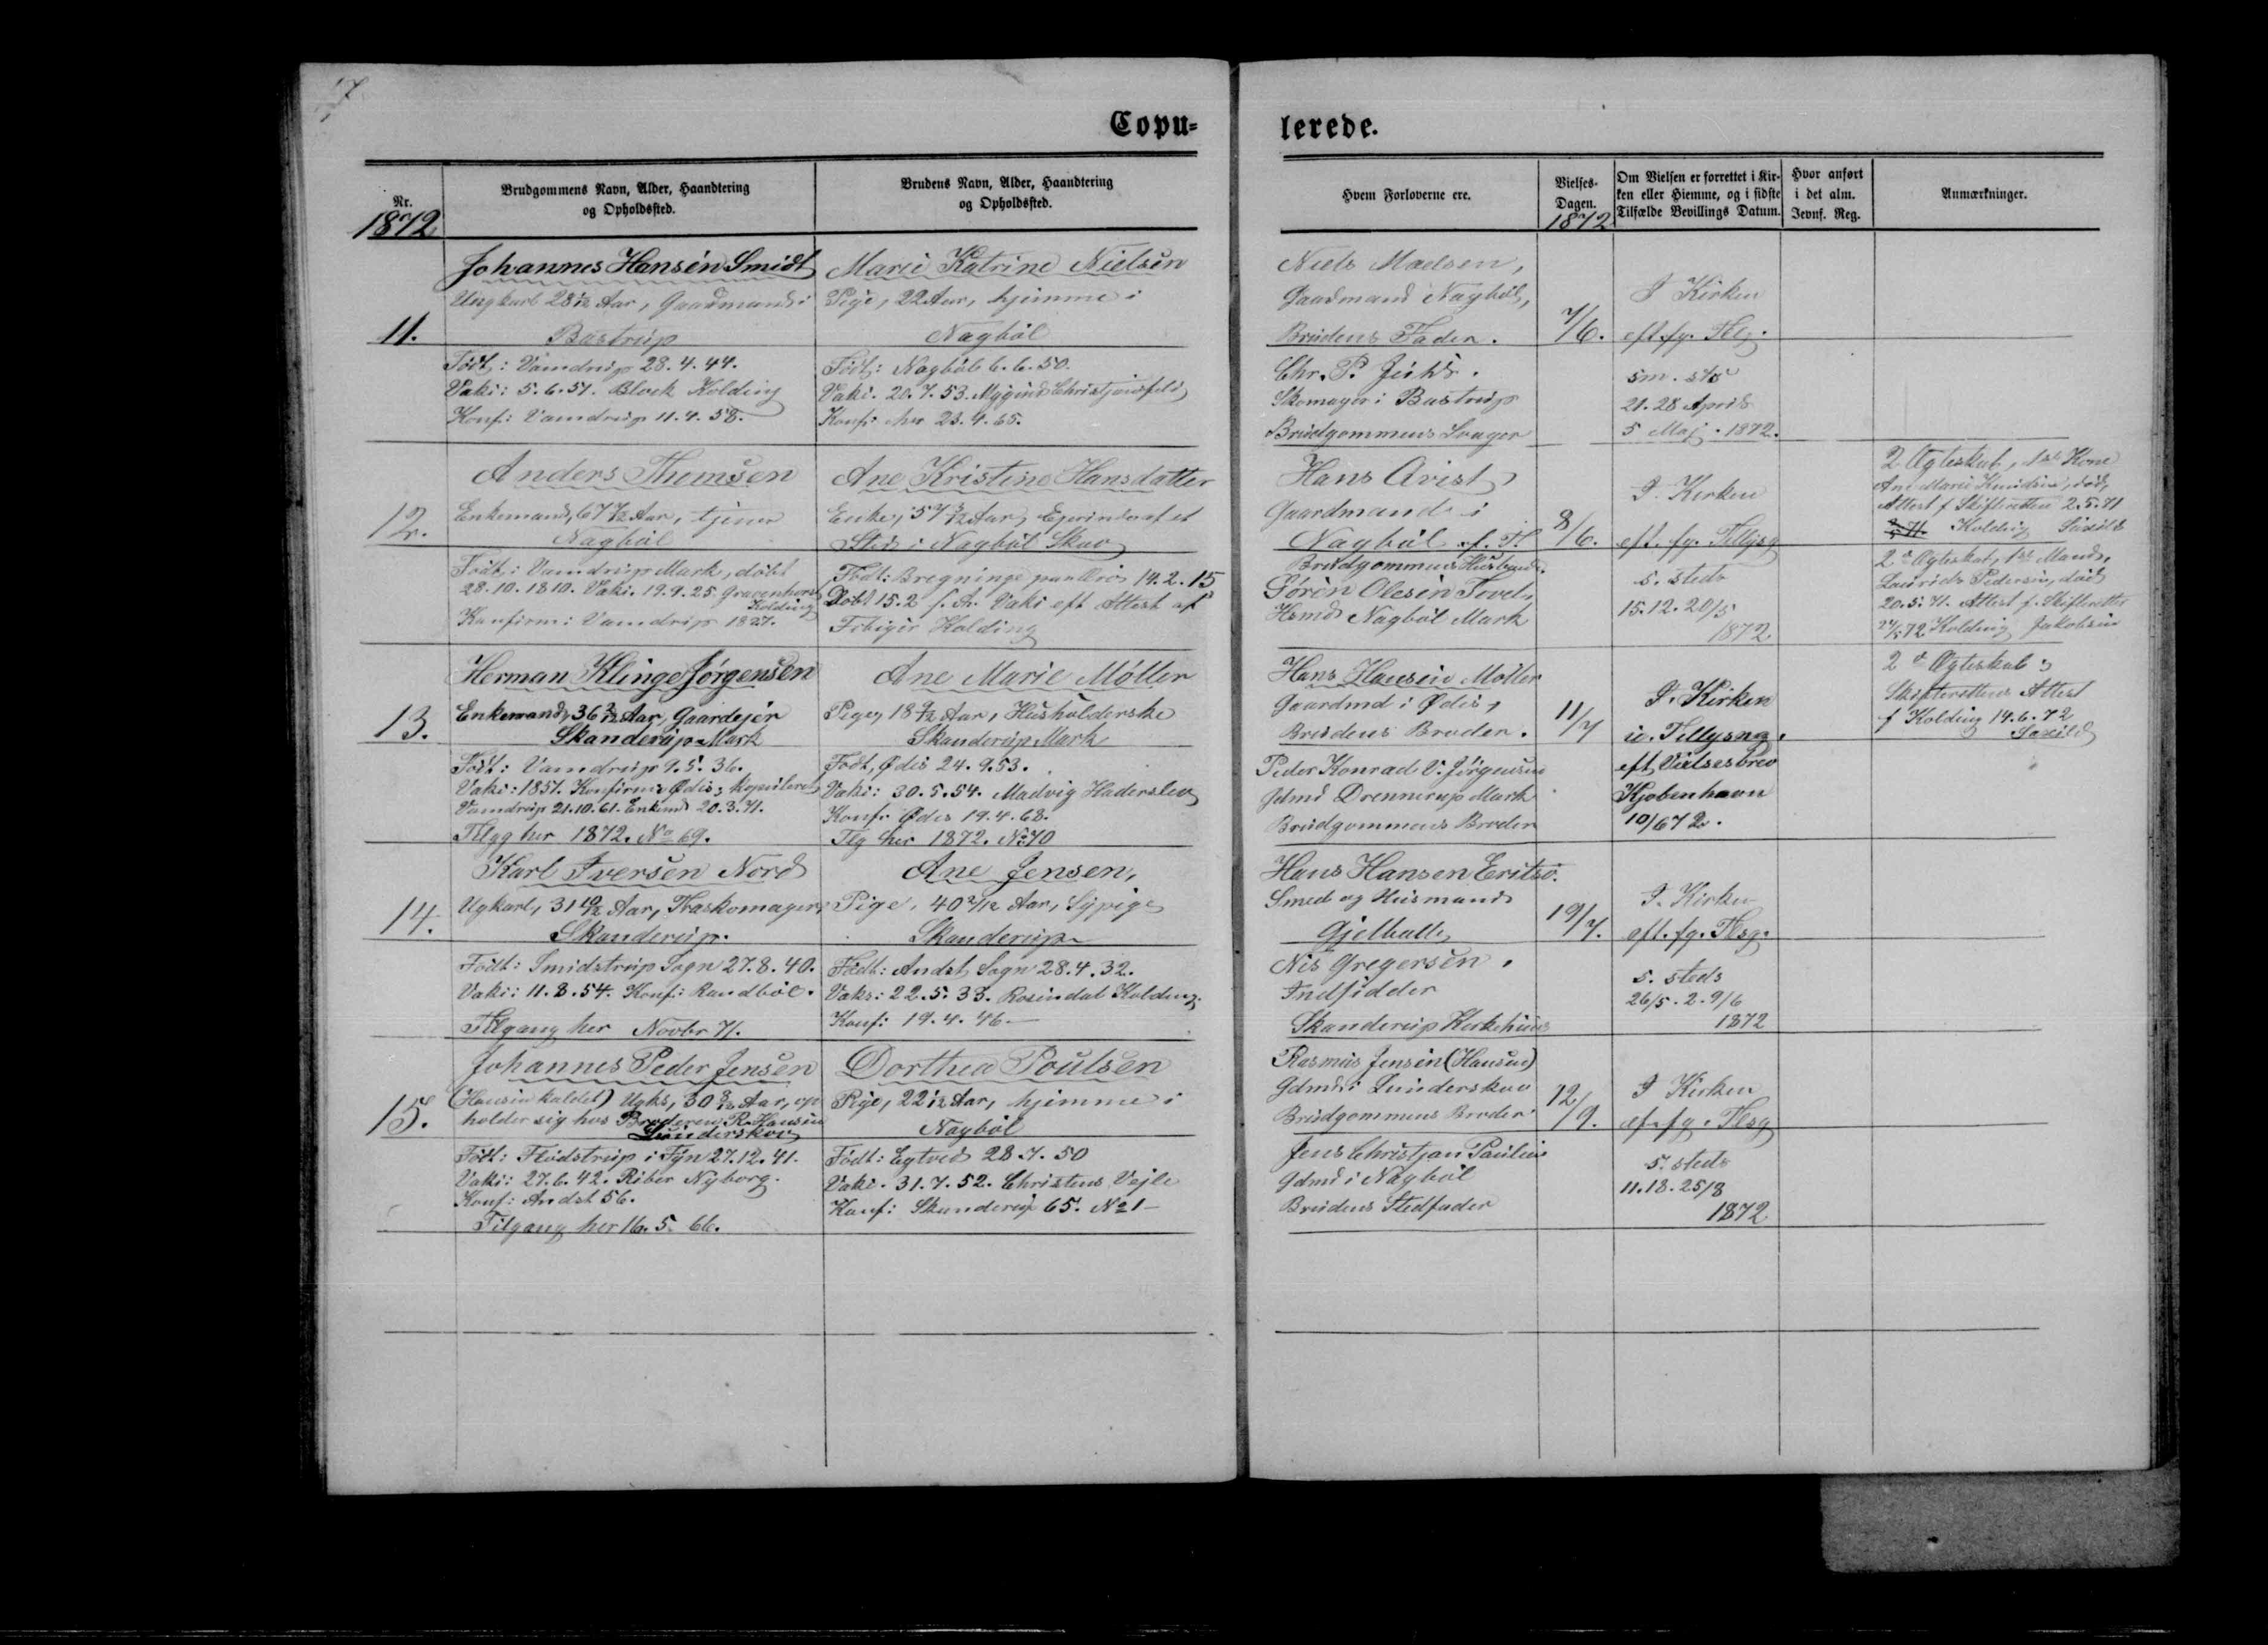 17
Copu=
lerede.
Nr.
1872
Brudgommens Navn, Alder, Haandtering
og Opholdssted.
Brudens Navn, Alder, Haandtering
og Opholdssted.
Hvem Forloverne ere.
Vielses-
Dagen.
1872
Om Vielsen er forrettet i Kir-
ken eller Hiemme, og i sidste
Tilfælde Bevillings Datum.
Hvor anført
i det alm.
Jevnf. Reg.
Anmærkninger.
11.
Johannes Hansen Smidt
Ungkarl 28 1/12 Aar, Gaardmand i
Bastrup
Født: Vamdrup 28.4.44.
Vakc: 5.6.51. Block Kolding
Konf: Vamdrup 11.4.58.
Marie Katrine Nielsen
Pige, 22 Aar, hjemme i
Nagbøl
Født: Nagbøl 6.6.50.
Vakc. 20.7.53. Mygind Christjansfeld
Konf: her 23.4.65.
Niels
Gaardmand Nagbøl,
Brudens Fader.
Chr. P.
Skomager i Bastrup
Brudgommens Svoger
7/6.
I Kirken
eft. fg. Tlg.
sm. std
21. 28 April
5 Maj. 1872.
12.
Anders Thomsen
Enkemand, 67 7/12 Aar, tjener
Nagbøl
Født: Vamdrup Mark, døbt
28.10.1810. Vakc. 19.9.25 Gravenhorst
Kolding
Konfirm: Vamdrup 1827.
Ane Kristine Hansdatter
Enke, 57 3/12 Aar, Ejerinde af et
Sted i Nagbøl Skov
Født: Bregninge paa Ærø 14.2.15
Døbt 15.2 s. A. Vakc eft Attest af
Fibiger Kolding
Hans Qvist
Gaardmand i
Nagbøl f. T.
Brudgommens Husbond.
Søren Olesen Tovel,
Hsmd Nagbøl Mark
8/6.
I Kirken
eft. fg. Tillysg
s. steds
15.12.20/5
1872
2 Ægteskab, 1ste Kone
Ane Marie Knudsen, død,
Attest f Skifteretten 2.5.71
Kolding Saxild
2d Ægteskab, 1ste Mand,
Laurids Pedersen, død
20.5.71. Attest f. Skifteretten
24/5 72 Kolding Jakobsen
13.
Herman Klinge Jørgensen
Enkemand, 36 2/12 Aar, Gaardejer
Skanderup Mark
Født: Vamdrup 9.5.36.
Vakc: 1851. Konfirm: Ødis; kopuleret
Vamdrup 21.10.61. Enkmd 20.3.71.
Tilgg her 1872. No 69.
Ane Marie Møller
Pige, 18 9/12 Aar, Husholderske
Skanderup Mark
Født, Ødis 24.9.53.
Vakc: 30.5.54. Madvig Haderslev
Konf: Ødis 19.4.68.
Tlg her 1872. No 70
Hans Hansen Møller
Gaardmd i Ødis,
Brudens Broder.
Peder Konrad V. Jørgensen
Gdmd Drenderup Mark
Brudgommens Broder
11/7
I Kirken
u. Tillysng.
eft Vielsesbrev
Kjøbenhavn
10/6 72.
2d Ægteskab;
Skifterettens Attest
f Kolding 14.6.72
Saxild
14.
Karl Iversen Nord
Ugkarl, 31 10/12 Aar, Træskomager,
Skanderup.
Født: Smidstrup Sogn 27.8.40.
Vakc: 11.8.54. Konf: Randbøl.
Tilgang her Novbr 71.
Ane Jensen,
Pige, 40 2/12 Aar, Sypige
Skanderup
Født: Andst Sogn 28.4.32.
Vakc: 22.5.33. Rosendal Kolding.
Konf: 19.4.46.
Hans Hansen Eritsø.
Smed og Husmand
Gjelballe
Nis Gregersen.
Indsidder
Skanderup Kirkehuus
19/7.
I. Kirken
eft. fg. Tlsg.
s. steds
26/5. 2. 9/6
1872
15.
Johannes Peder Jensen
(Hansen kaldet) Ugks, 30 8/12 Aar, op
holder sig hos Broderen R. Hansen
Lunderskov
Født: Flødstrup i Fyn 27.12.41.
Vakc: 27.6.42. Riber Nyborg.
Konf: Andst 56.
Tilgang her 16.5.66.
Dorthea Poulsen
Pige, 22 1/12 Aar, hjemme i
Nagbøl
Født: Egtved 28.7.50
Vakc. 31.7.52. Christens Vejle
Konf: Skanderup 65. No 1
Rasmus Jensen (Hansen)
Gdmd i Lunderskov
Brudgommens Broder
Jens Christjan Paulsen
Gdmd i Nagbøl
Brudens Stedfader
12/9.
I Kirken
ef. fg. Tlsg
s. steds
11.18.25/8
1872